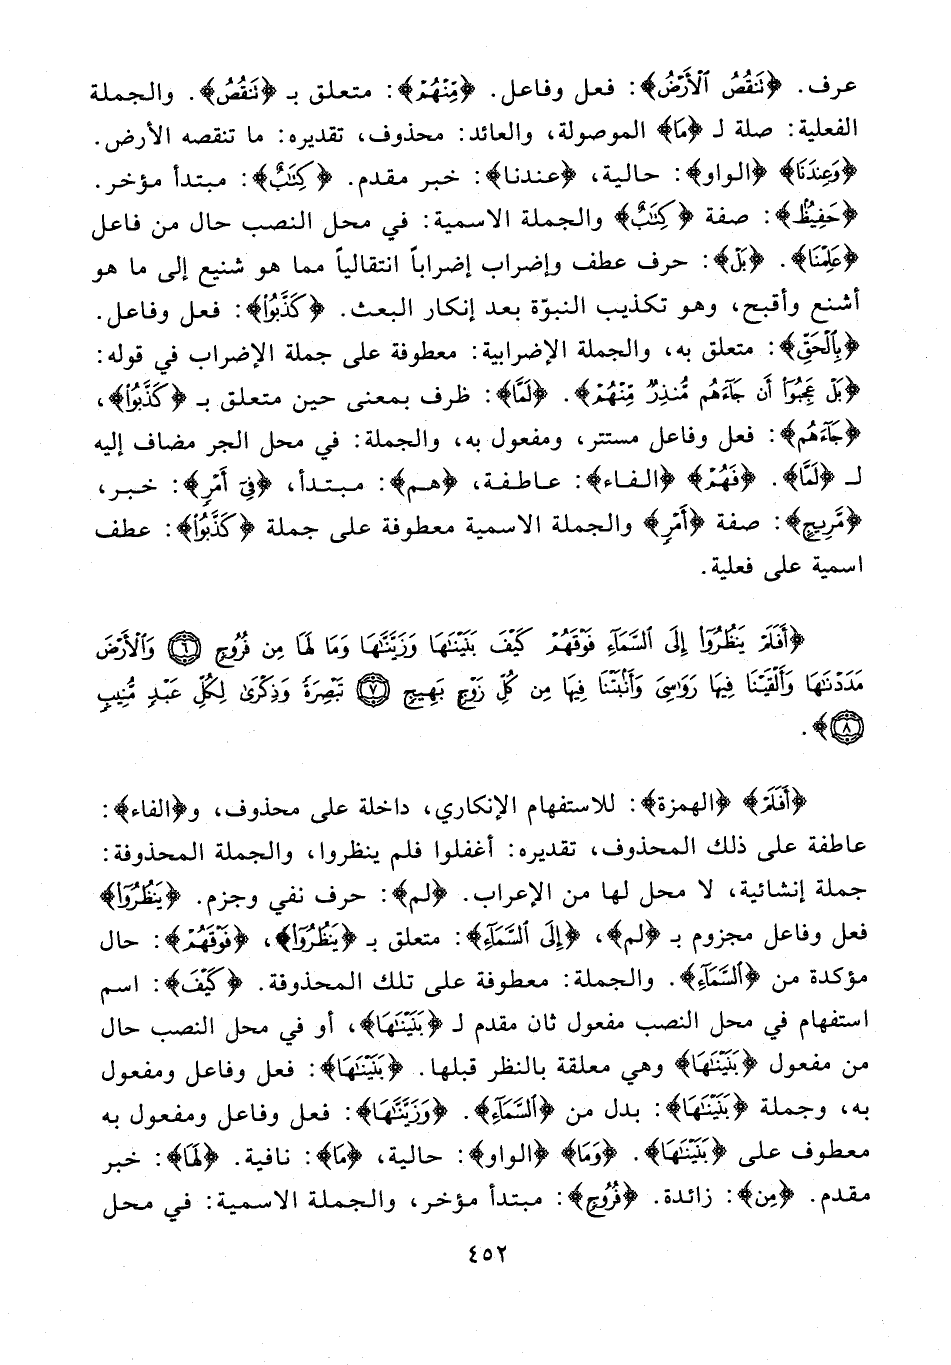 عرف. ﴿تَنقُصُ ٱلْأَرْضُ﴾: فعل وفاعل. ﴿مِنْهُمْ﴾: متعلق بـ ﴿تَنقُصُ﴾. والجملة
الفعلية: صلة لـ ﴿مَا﴾ الموصولة، والعائد: محذوف، تقديره: ما تنقصه الأرض.
﴿وَعِندَنَا﴾ ﴿الواو﴾: حالية، ﴿عندنا﴾: خبر مقدم. ﴿كِتَٰبٌ﴾: مبتدأ مؤخر.
﴿حَفِيظٌ﴾: صفة ﴿كِتَٰبٌ﴾ والجملة الاسمية: في محل النصب حال من فاعل
﴿عَلِمْنَا﴾. ﴿بَلْ﴾: حرف عطف وإضراب إضراباً انتقالياً مما هو شنيع إلى ما هو
أشنع وأقبح، وهو تكذيب النبوّة بعد إنكار البعث. ﴿كَذَّبُوا۟﴾: فعل وفاعل.
﴿بِٱلْحَقِّ﴾: متعلق به، والجملة الإضرابية: معطوفة على جملة الإضراب في قوله:
﴿بَلْ عَجِبُوٓا۟ أَن جَآءَهُم مُّنذِرٌ مِّنْهُمْ﴾. ﴿لَمَّا﴾: ظرف بمعنى حين متعلق بـ ﴿كَذَّبُوا۟﴾،
﴿جَآءَهُمْ﴾: فعل وفاعل مستتر، ومفعول به، والجملة: في محل الجر مضاف إليه
لـ ﴿لَمَّا﴾. ﴿فَهُمْ﴾ ﴿الفاء﴾: عاطفة، ﴿هم﴾: مبتدأ، ﴿فِىٓ أَمْرٍ﴾: خبر،
﴿مَّرِيجٍ﴾: صفة ﴿أَمْرٍ﴾ والجملة الاسمية معطوفة على جملة ﴿كَذَّبُوا۟﴾: عطف
اسمية على فعلية.
﴿أَفَلَمْ يَنظُرُوٓا۟ إِلَى ٱلسَّمَآءِ فَوْقَهُمْ كَيْفَ بَنَيْنَٰهَا وَزَيَّنَّٰهَا وَمَا لَهَا مِن فُرُوجٍ ٦ وَٱلْأَرْضَ
مَدَدْنَٰهَا وَأَلْقَيْنَا فِيهَا رَوَٰسِىَ وَأَنۢبَتْنَا فِيهَا مِن كُلِّ زَوْجٍۭ بَهِيجٍ ٧ تَبْصِرَةً وَذِكْرَىٰ لِكُلِّ عَبْدٍ مُّنِيبٍ
٨﴾.
﴿أَفَلَمْ﴾ ﴿الهمزة﴾: للاستفهام الإنكاري، داخلة على محذوف، و﴿الفاء﴾:
عاطفة على ذلك المحذوف، تقديره: أغفلوا فلم ينظروا، والجملة المحذوفة:
جملة إنشائية، لا محل لها من الإعراب. ﴿لم﴾: حرف نفي وجزم. ﴿يَنظُرُوٓا۟﴾
فعل وفاعل مجزوم بـ ﴿لم﴾، ﴿إِلَى ٱلسَّمَآءِ﴾: متعلق بـ ﴿يَنظُرُوٓا۟﴾، ﴿فَوْقَهُمْ﴾: حال
مؤكدة من ﴿ٱلسَّمَآءِ﴾. والجملة: معطوفة على تلك المحذوفة. ﴿كَيْفَ﴾: اسم
استفهام في محل النصب مفعول ثان مقدم لـ ﴿بَنَيْنَٰهَا﴾، أو في محل النصب حال
من مفعول ﴿بَنَيْنَٰهَا﴾ وهي معلقة بالنظر قبلها. ﴿بَنَيْنَٰهَا﴾: فعل وفاعل ومفعول
به، وجملة ﴿بَنَيْنَٰهَا﴾: بدل من ﴿ٱلسَّمَآءِ﴾. ﴿وَزَيَّنَّٰهَا﴾: فعل وفاعل ومفعول به
معطوف على ﴿بَنَيْنَٰهَا﴾. ﴿وَمَا﴾ ﴿الواو﴾: حالية، ﴿مَا﴾: نافية. ﴿لَهَا﴾: خبر
مقدم. ﴿مِن﴾: زائدة. ﴿فُرُوجٍ﴾: مبتدأ مؤخر، والجملة الاسمية: في محل
٤٥٢